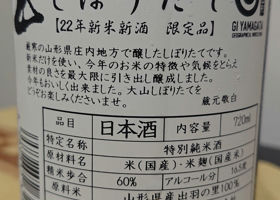 しぼりたて
GI YAMAGATA
【22年新米新酒 限定品】
厳寒の山形県庄内地方で醸したしぼりたてです。
新米だけを使い、今年のお米の特徴や気候をとらえ
素材の良さを最大限に引き出し醸成しまし
た。出来立ての美味しさ、大山しぼりたてを
どうぞお楽しみくださいませ。
蔵元敬白
品目 日本酒 内容量 720ml
特定名称 特別純米酒
原材料名 米(国産)・米麹(国産米)
精米歩合 60% アルコール分 16.5度
原料米 山形県産出羽の里100%